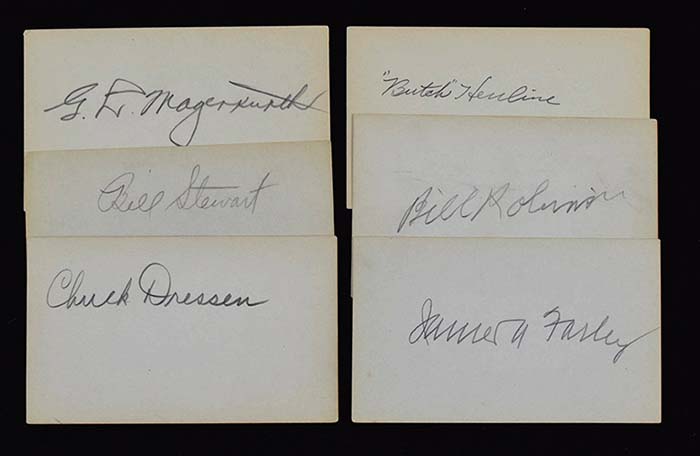 G. L. Magerkurth
Bill Stewart
Chuck Dressen
"Butch" Henline
Bill Robinson
James A Farley